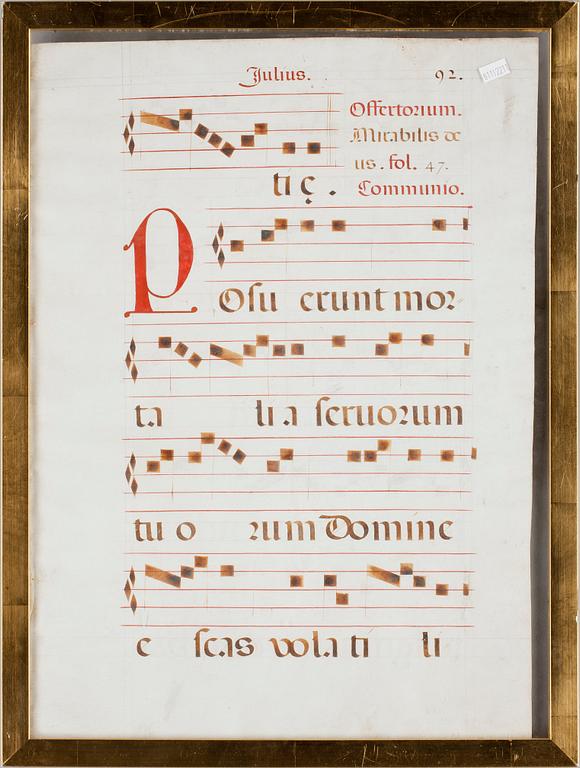 Julius. 92.
Offertorium.
Mirabilis de
us. fol. 47.
ti ę . Communio.
POsu erunt mor
ta li a seruorum
tu o rum Domine
e scas vola ti li